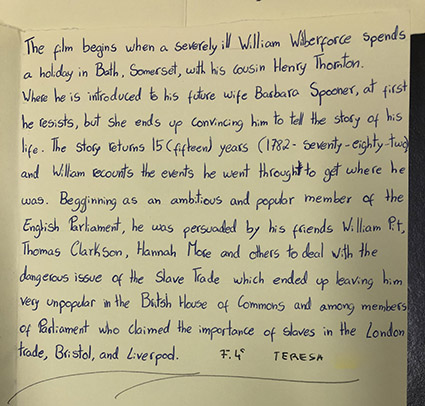 The film begins when a severely ill William Wilberforce spends
a holiday in Bath, Somerset, with his cousin Henry Thornton.
Where he is introduced to his future wife Barbara Spooner, at first
he resists, but she ends up convincing him to tell the story of his
life. The story returns 15 (fifteen) years (1782 - seventy-eighty-two)
and Willam recounts the events he went throught to get where he
was. Beggining as an ambitious and popular member of the
English Parliament, he was persuaded by his friends William Pit,
Thomas Clarkson, Hannah More and others to deal with the
dangerous issue of the Slave Trade which ended up leaving him
very unpopular in the British House of Commons and among members
of Parliament who claimed the importance of slaves in the London
trade, Bristol, and Liverpool. F. 4º TERESA